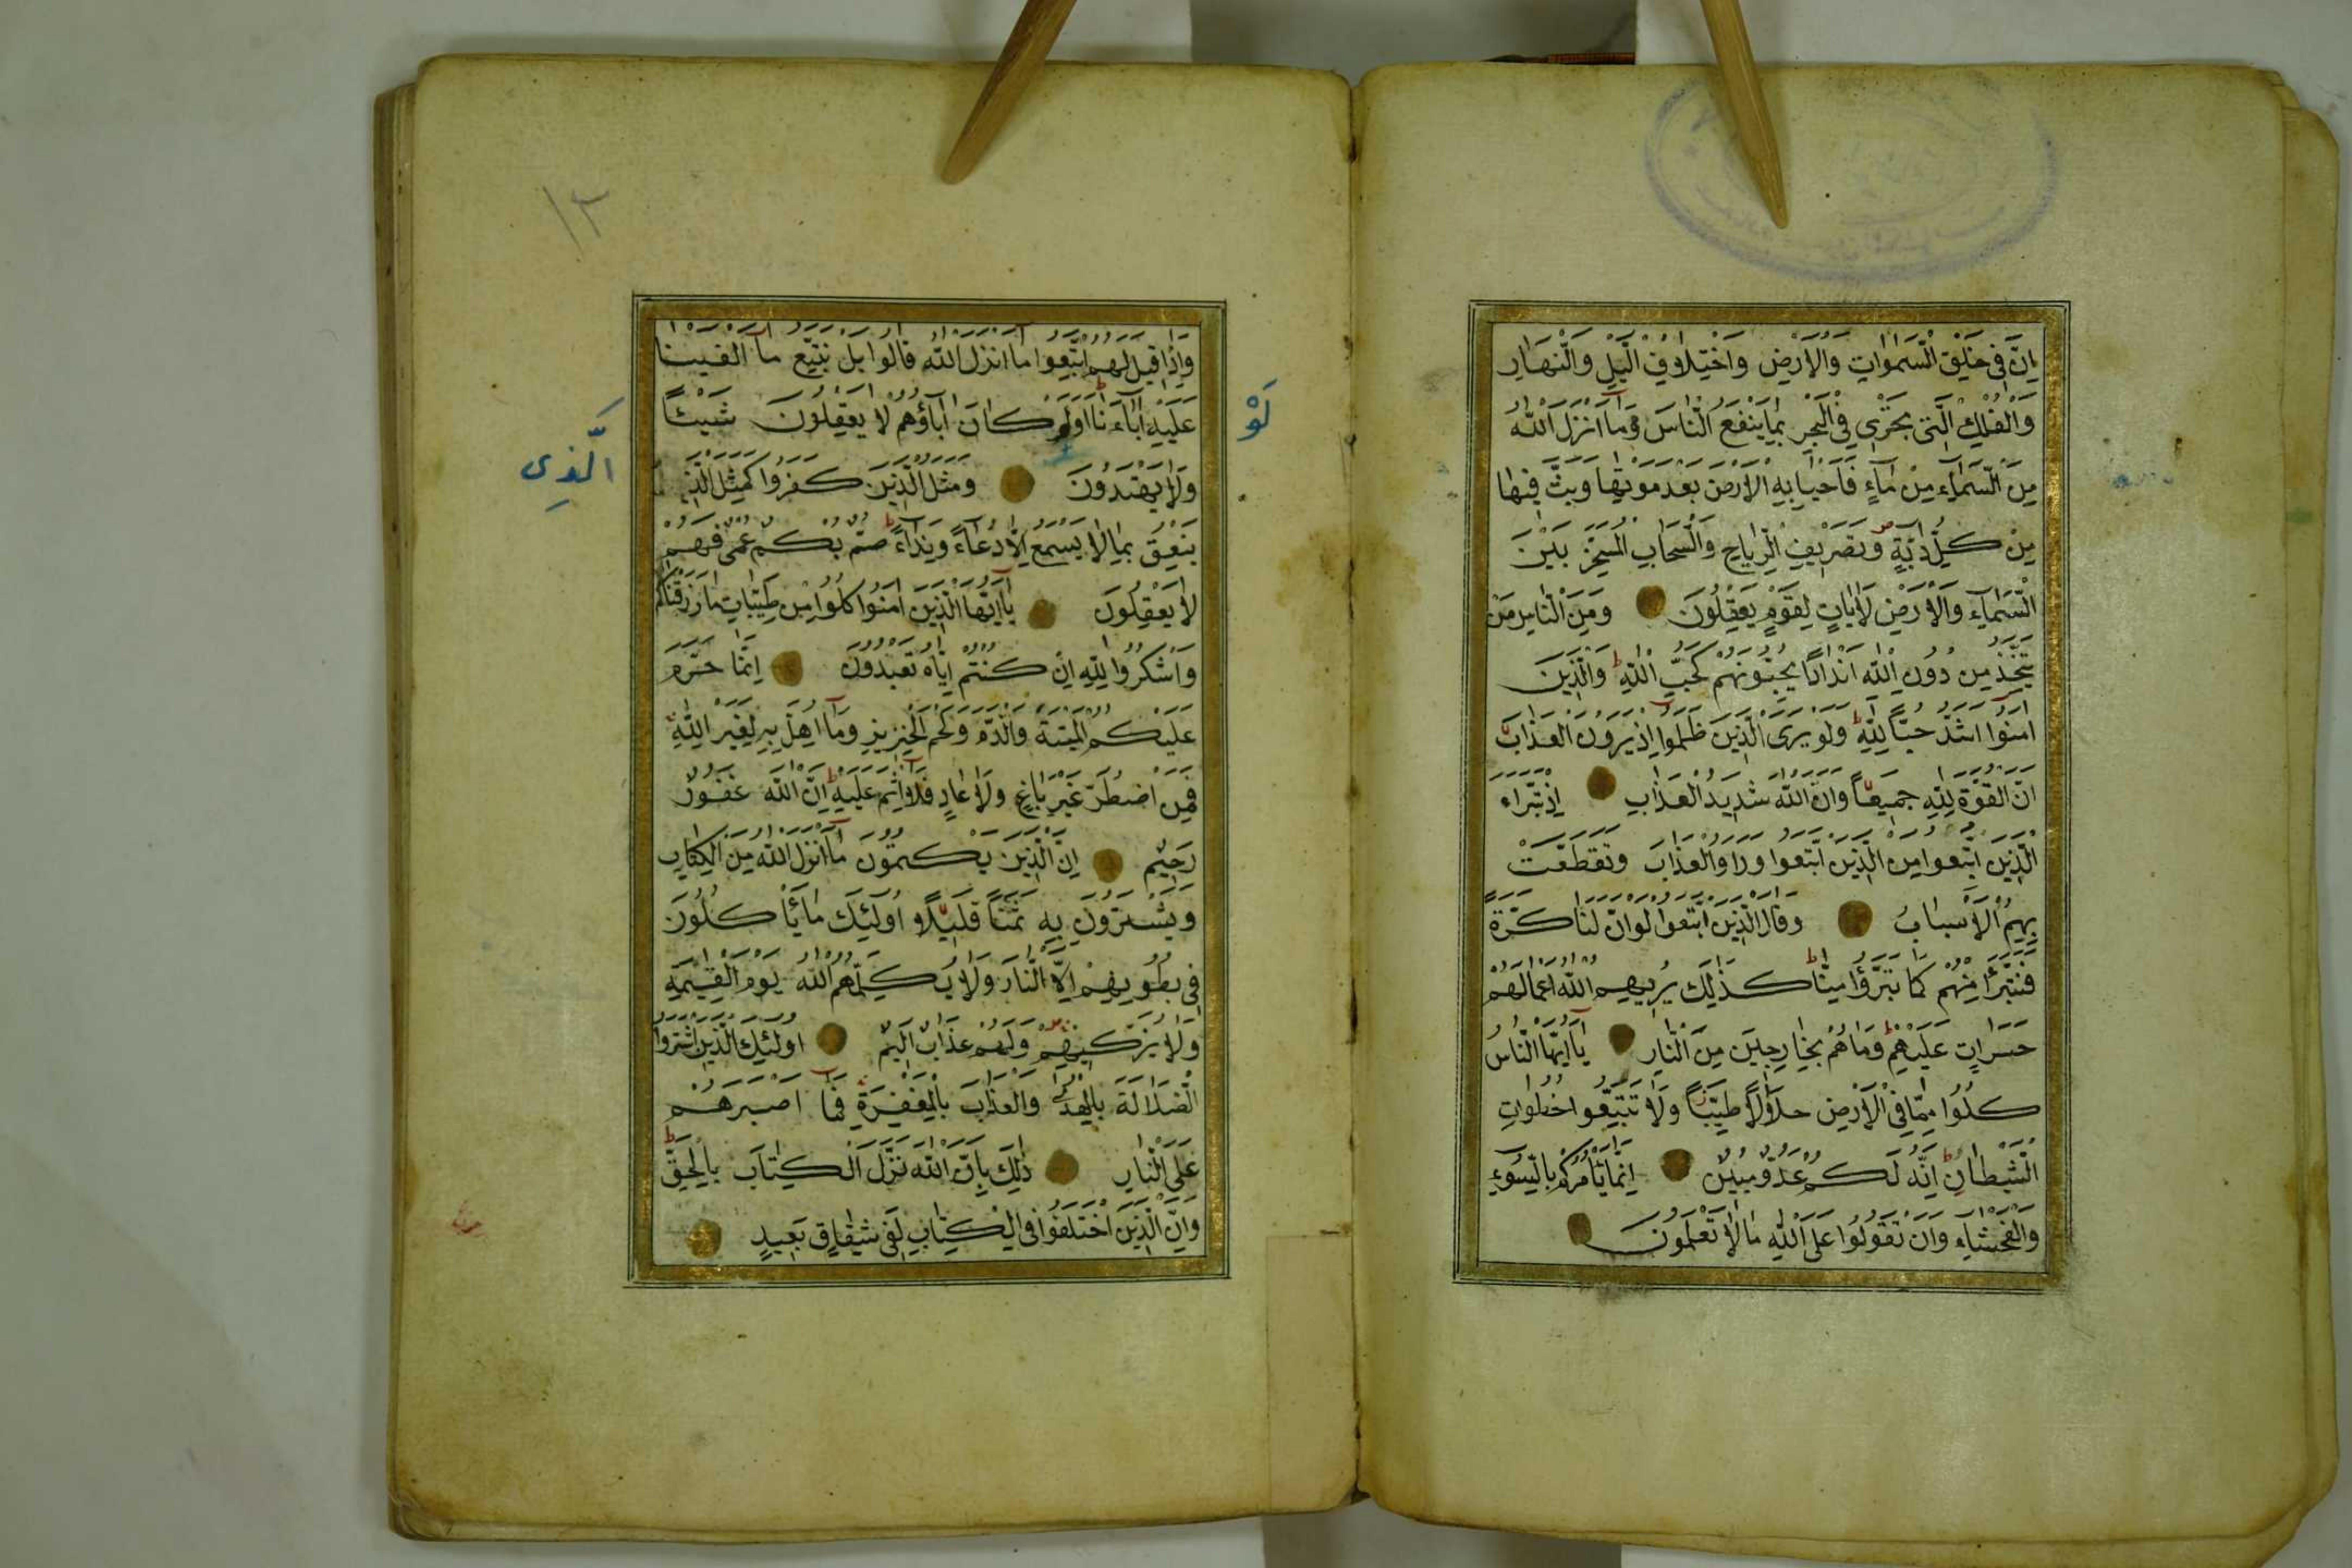 اِنَّ فِى خَلْقِ السَّمٰوَاتِ وَالْاَرْضِ وَاخْتِلَافِ الَّيْلِ وَالنَّهَارِ
وَالْفُلْكِ الَّتِى تَجْرِى فِى الْبَحْرِ بِمَا يَنْفَعُ النَّاسَ وَمَآ اَنْزَلَ اللّٰهُ
مِنَ السَّمَآءِ مِنْ مَآءٍ فَاَحْيَا بِهِ الْاَرْضَ بَعْدَ مَوْتِهَا وَبَثَّ فِيهَا
مِنْ كُلِّ دَآبَّةٍ وَتَصْرِيفِ الرِّيَاحِ وَالسَّحَابِ الْمُسَخَّرِ بَيْنَ
السَّمَآءِ وَالْاَرْضِ لَاٰيَاتٍ لِقَوْمٍ يَعْقِلُونَ وَمِنَ النَّاسِ مَنْ
يَتَّخِذُ مِنْ دُونِ اللّٰهِ اَنْدَادًا يُحِبُّونَهُمْ كَحُبِّ اللّٰهِ وَالَّذِينَ
اٰمَنُوٓا اَشَدُّ حُبًّا لِلّٰهِ وَلَوْ يَرَى الَّذِينَ ظَلَمُوٓا اِذْ يَرَوْنَ الْعَذَابَ
اَنَّ الْقُوَّةَ لِلّٰهِ جَمِيعًا وَاَنَّ اللّٰهَ شَدِيدُ الْعَذَابِ اِذْ تَبَرَّاَ
الَّذِينَ اتُّبِعُوا مِنَ الَّذِينَ اتَّبَعُوا وَرَاَوُا الْعَذَابَ وَتَقَطَّعَتْ
بِهِمُ الْاَسْبَابُ وَقَالَ الَّذِينَ اتَّبَعُوا لَوْ اَنَّ لَنَا كَرَّةً
فَنَتَبَرَّاَ مِنْهُمْ كَمَا تَبَرَّؤُا مِنَّا كَذٰلِكَ يُرِيهِمُ اللّٰهُ اَعْمَالَهُمْ
حَسَرَاتٍ عَلَيْهِمْ وَمَا هُمْ بِخَارِجِينَ مِنَ النَّارِ يَآ اَيُّهَا النَّاسُ
كُلُوا مِمَّا فِى الْاَرْضِ حَلَالًا طَيِّبًا وَلَا تَتَّبِعُوا خُطُوَاتِ
الشَّيْطَانِ اِنَّهُ لَكُمْ عَدُوٌّ مُبِينٌ اِنَّمَا يَاْمُرُكُمْ بِالسُّوٓءِ
وَالْفَحْشَآءِ وَاَنْ تَقُولُوا عَلَى اللّٰهِ مَا لَا تَعْلَمُونَ
١٣
وَاِذَا قِيلَ لَهُمُ اتَّبِعُوا مَآ اَنْزَلَ اللّٰهُ قَالُوا بَلْ نَتَّبِعُ مَآ اَلْفَيْنَا
عَلَيْهِ اٰبَآءَنَا اَوَلَوْ كَانَ اٰبَآؤُهُمْ لَا يَعْقِلُونَ شَيْئًا
لَوْ
وَلَا يَهْتَدُونَ وَمَثَلُ الَّذِينَ كَفَرُوا كَمَثَلِ الَّذِ
الَّذِى
يَنْعِقُ بِمَا لَا يَسْمَعُ اِلَّا دُعَآءً وَنِدَآءً صُمٌّ بُكْمٌ عُمْىٌ فَهُمْ
لَا يَعْقِلُونَ يَآ اَيُّهَا الَّذِينَ اٰمَنُوا كُلُوا مِنْ طَيِّبَاتِ مَا رَزَقْنَاكُمْ
وَاشْكُرُوا لِلّٰهِ اِنْ كُنْتُمْ اِيَّاهُ تَعْبُدُونَ اِنَّمَا حَرَّمَ
عَلَيْكُمُ الْمَيْتَةَ وَالدَّمَ وَلَحْمَ الْخِنْزِيرِ وَمَآ اُهِلَّ بِهِ لِغَيْرِ اللّٰهِ
فَمَنِ اضْطُرَّ غَيْرَ بَاغٍ وَلَا عَادٍ فَلَآ اِثْمَ عَلَيْهِ اِنَّ اللّٰهَ غَفُورٌ
رَحِيمٌ اِنَّ الَّذِينَ يَكْتُمُونَ مَآ اَنْزَلَ اللّٰهُ مِنَ الْكِتَابِ
وَيَشْتَرُونَ بِهِ ثَمَنًا قَلِيلًا اُولٰٓئِكَ مَا يَاْكُلُونَ
فِى بُطُونِهِمْ اِلَّا النَّارَ وَلَا يُكَلِّمُهُمُ اللّٰهُ يَوْمَ الْقِيٰمَةِ
وَلَا يُزَكِّيهِمْ وَلَهُمْ عَذَابٌ اَلِيمٌ اُولٰٓئِكَ الَّذِينَ اشْتَرَوُا
الضَّلَالَةَ بِالْهُدٰى وَالْعَذَابَ بِالْمَغْفِرَةِ فَمَآ اَصْبَرَهُمْ
عَلَى النَّارِ ذٰلِكَ بِاَنَّ اللّٰهَ نَزَّلَ الْكِتَابَ بِالْحَقِّ
وَاِنَّ الَّذِينَ اخْتَلَفُوا فِى الْكِتَابِ لَفِى شِقَاقٍ بَعِيدٍ